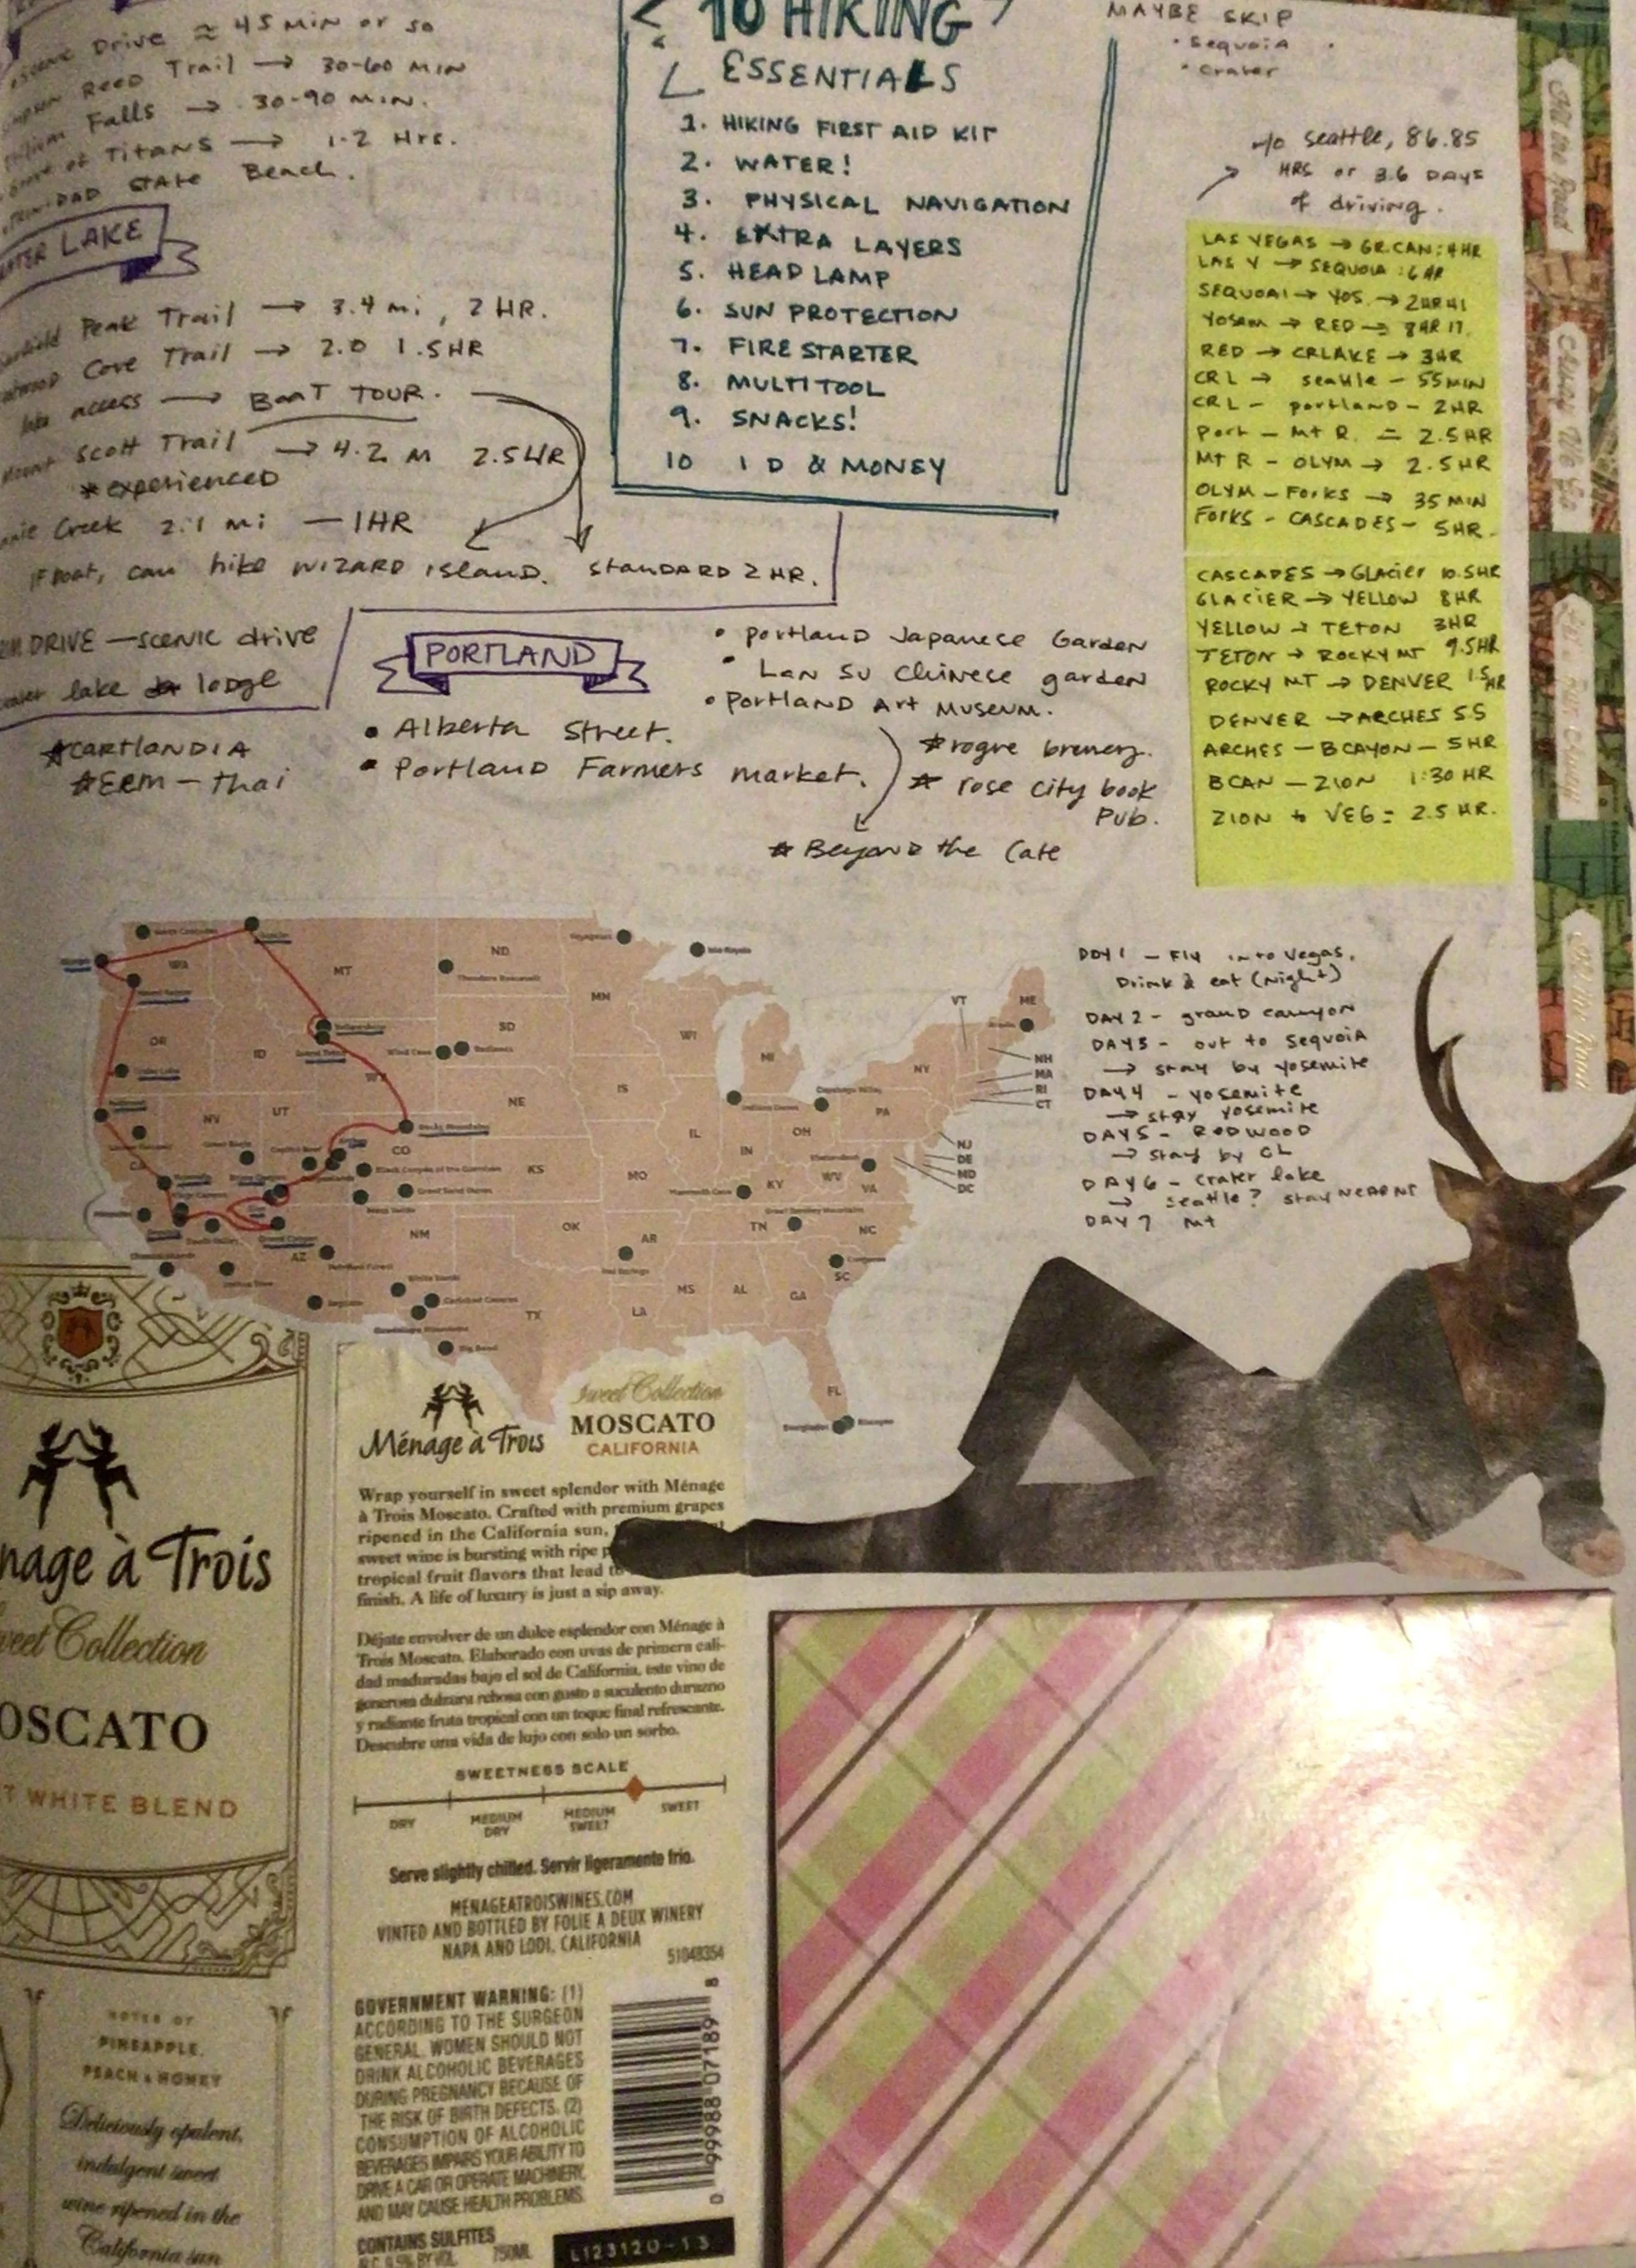 Scenic Drive ≈ 45 MIN or so
Reed Trail → 30-60 MIN
Falls → 30-90 MIN.
Grove of Titans → 1-2 Hrs.
TRINIDAD STATE Beach.
LAKE
Peak Trail → 3.4 mi, 2 HR.
Cove Trail → 2.0 1.5HR
lake access → BOAT TOUR.
Mount Scott Trail → 4.2 M 2.5 HR
*experienced
Creek 2.1 mi — 1HR
If boat, can hike wizard island. Standard 2 HR.
DRIVE — scenic drive
lake lodge
*CARTLANDIA
*EEM - Thai
10 HIKING
ESSENTIALS
1. HIKING FIRST AID KIT
2. WATER!
3. PHYSICAL NAVIGATION
4. EXTRA LAYERS
5. HEAD LAMP
6. SUN PROTECTION
7. FIRE STARTER
8. MULTITOOL
9. SNACKS!
10 ID & MONEY
PORTLAND
• Alberta Street.
• Portland Farmers market.
• Portland Japanese Garden
• Lan Su Chinese garden
• Portland Art Museum.
*rogue brewery.
* rose city book
Pub.
* Beyond the Cafe
MAYBE SKIP
• Sequoia
• Crater
w/o seattle, 86.85
HRS or 3.6 DAYS
of driving.
LAS VEGAS → GR.CAN: 4HR
LAS V → SEQUOIA : 6 HR
SEQUOAI → YOS. → 2HR 41
YOSEM → RED → 8HR 17.
RED → CRLAKE → 3HR
CRL → seattle - 55MIN
CRL - portland - 2HR
Port - Mt R. = 2.5HR
Mt R - OLYM → 2.5HR
OLYM - FORKS → 35 MIN
FORKS - CASCADES - 5HR.
CASCADES → GLACIER 10.5HR
GLACIER → YELLOW 8HR
YELLOW → TETON 3HR
TETON → ROCKY MT 9.5HR
ROCKY MT → DENVER 1.5HR
DENVER → ARCHES 5.5
ARCHES - BCAYON - 5HR
BCAN - ZION 1:30 HR
ZION to VEG = 2.5 HR.
DAY 1 - Fly into Vegas.
Drink & eat (night)
DAY 2 - grand canyon
DAY 3 - out to sequoia
→ stay by yosemite
DAY 4 - yosemite
→ stay yosemite
DAY 5 - REDWOOD
→ stay by CL
DAY 6 - crater lake
→ seattle? stay near MT
DAY 7 mt
WA
MT
ND
MN
OR
ID
SD
WI
MI
WY
NV
UT
NE
CA
CO
KS
MO
IL
IN
OH
PA
NY
VT
ME
NH
MA
RI
CT
NJ
DE
MD
DC
WV
VA
KY
TN
NC
SC
GA
AL
MS
LA
AR
OK
TX
NM
AZ
FL
Theodore Roosevelt
Isle Royale
Rocky Mountains
Black Canyon of the Gunnison
Great Sand Dunes
White Sands
Carlsbad Caverns
Big Bend
nage à Trois
Sweet Collection
OSCATO
T WHITE BLEND
NOTES OF
PINEAPPLE,
PEACH & HONEY
Deliciously opulent,
indulgent sweet
wine ripened in the
California sun
Ménage à Trois
Sweet Collection
MOSCATO
CALIFORNIA
Wrap yourself in sweet splendor with Ménage
à Trois Moscato. Crafted with premium grapes
ripened in the California sun,
sweet wine is bursting with ripe p
tropical fruit flavors that lead to
finish. A life of luxury is just a sip away.
Déjate envolver de un dulce esplendor con Ménage à
Trois Moscato. Elaborado con uvas de primera cali-
dad maduradas bajo el sol de California, este vino de
generosa dulzura rebosa con gusto a suculento durazno
y radiante fruta tropical con un toque final refrescante.
Descubre una vida de lujo con solo un sorbo.
SWEETNESS SCALE
DRY
MEDIUM DRY
MEDIUM SWEET
SWEET
Serve slightly chilled. Servir ligeramente frío.
MENAGEATROISWINES.COM
VINTED AND BOTTLED BY FOLIE A DEUX WINERY
NAPA AND LODI, CALIFORNIA
51048354
GOVERNMENT WARNING: (1)
ACCORDING TO THE SURGEON
GENERAL, WOMEN SHOULD NOT
DRINK ALCOHOLIC BEVERAGES
DURING PREGNANCY BECAUSE OF
THE RISK OF BIRTH DEFECTS. (2)
CONSUMPTION OF ALCOHOLIC
BEVERAGES IMPAIRS YOUR ABILITY TO
DRIVE A CAR OR OPERATE MACHINERY,
AND MAY CAUSE HEALTH PROBLEMS.
CONTAINS SULFITES
BY VOL. 750ML
0 99988 07189 8
L123120-13